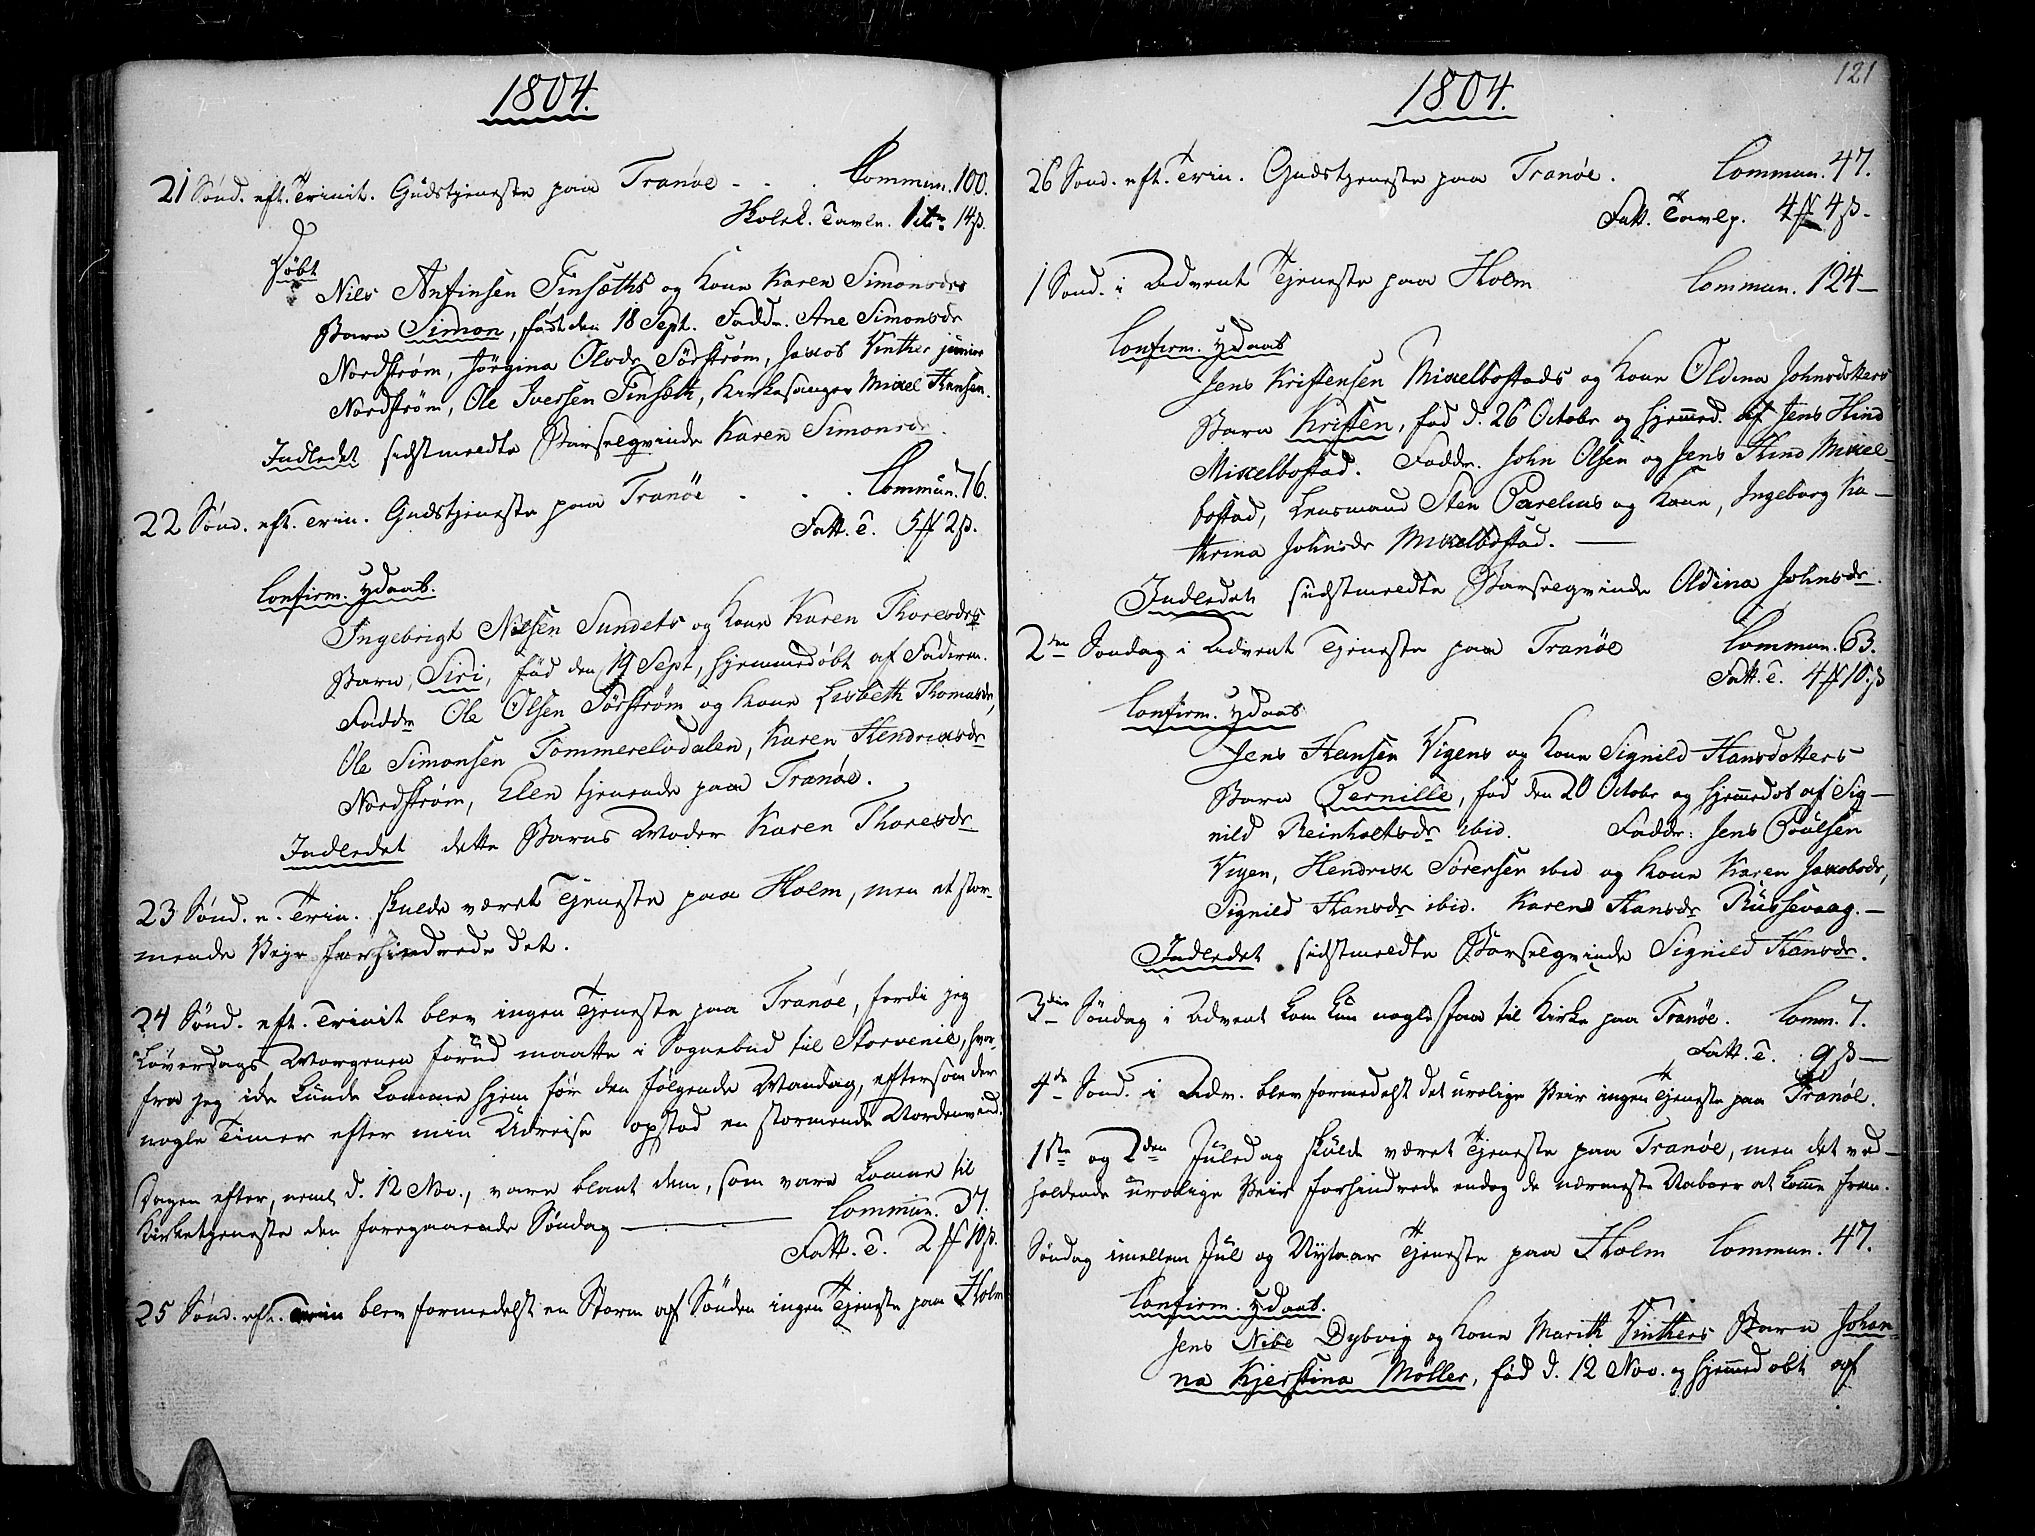 1804.
21 Sønd. eft. Trinit. Gudstjeneste paa Tranøe - . . Commun. 100.
Skolek. Tavle. 14ß.
Døbt
Nils Anfinsen Finsæths og Kone Karen Simonsdrs
Barn Simon, født den 18 Sept. Faddr. Ane Simonsdr
Nordstrøm, Jørgina Olsdr Sørstrøm, Jacob Vinther junior
Nordstrøm, Ole Iversen Finsæth, Kirkesanger Mikel Hansen.
Indledet sidstmeldte Barselqvinde Karen Simonsdr.
22 Sønd. eft. Trin. Gudstjeneste paa Tranöe - . . Commun. 76.
Fatt. T. 5 ℔ 2ß.
Confirm. Hdaab.
Ingebrigt Nilsen Sundets og Kone Karen Thoresdrs
Barn, Siri, född den 19 Sept, hjemmedøbt af Faderen.
Faddr Ole Olsen Sørstrøm og Kone Lisbeth Thomasdr,
Ole Simonsen Tommerelvdalen, Karen Hendrixdr
Nordstrøm, Elen tjenende paa Tranøe.
Indledet dette Barns Moder Karen Thoresdr
23 Sønd. e. Trin. skulde været Tjeneste paa Holm, men et stor-
mende Veir forhindrede det.
24 Sønd. eft. Trinit blev ingen Tjeneste paa Tranøe, fordi jeg
Løverdags Morgenen forud maatte i Sognebud til hvor-
fra jeg ikke kunde komme hjem før den følgende Mandag, eftersom der
nogle Timer efter min Udreise opstod en stormende Nordenvind.
Dagen efter, neml d. 12 Nov., vare blant dem, som vare komne til
Kirketjeneste den foregaaende Søndag — Commun. 37.
Fatt. T. 2 ℔ 10ß.
25 Sønd. eft. Trin blev formedelst en Storm af Sønden ingen Tjeneste paa Holm
121
1804.
26 Sønd. eft. Trin. Gudstjeneste paa Tranøe. Commun. 47.
Fatt. Tavlp. 4 ℔ 4ß-
1 Sønd. i Advent Tjeneste paa Holm Commun. 124-
Confirm. Hdaab
Jens Kristensen Mikelbostads og Kone Oldina Johnsdotters
Barn Kristen, fød d. 26 Octobr og hjemmed. af Jens Hind
Mikelbostad. Faddr. John Olsen og Jens Hind Mikel-
bostad, Lensmand Sten Parelius og Kone, Ingeborg Ka-
thrina Johnsdr Mikelbostad. —
Indledet sidstmeldte Barselqvinde Oldina Johnsdr.
2den Søndag i Advent Tjeneste paa Tranøe Commun. 63.
Fatt. T. 4 ℔ 10.ß
Confirm. Hdaab
Jens Hansen Vigens og Kone Signild Hansdotters
Barn Pernille, fød den 20 Octobr og hjemmedøb af Sig-
nild Reinholtsdr ibid. Faddr: Jens Poulsen
Vigen, Hendrik Sörensen ibid og Kone Karen Jakobsdr,
Signild Hansdr ibid. Karen Hansdr Russevaag. -
Indledet sidstmeldte Barselqvinde Signild Hansdr.
3die Søndag i Advent kom kun nogle faa til Kirke paa Tranøe. Comm. 7.
Fatt. T. 9 ß —
4de Sønd. i Adv. blev formedelst det urolige Veir ingen Tjeneste paa Tranøe.
1ste og 2den Juledag skulde været Tjeneste paa Tranøe, men det ved-
holdende urolige Veir forhindrede endog de nærmeste Naboer at komme frem.
Søndag imellem Jul og Nytaar Tjeneste paa Holm Commun. 47.
Confirm. Hdaab.
Jens Nibe Dybvig og Kone Marith Vinthers Barn Johan-
na Kjerstina Møller, fød d. 12 Nov. og hjemmedøbt af